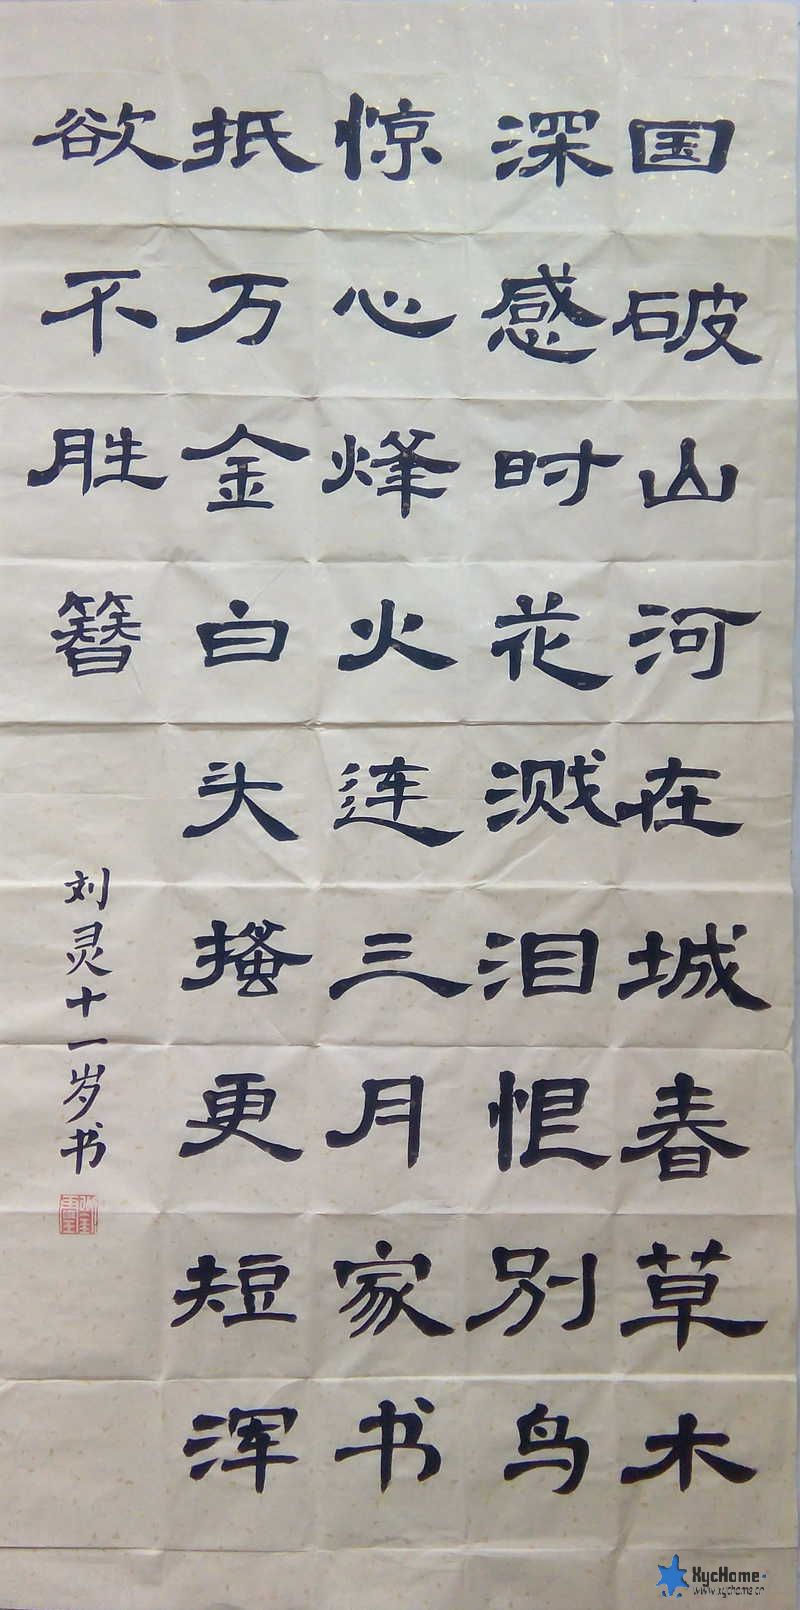 国破山河在城春草木
深感时花溅泪恨别鸟
惊心烽火连三月家书
抵万金白头搔更短浑
欲不胜簪
刘灵十一岁书
XycHome
www.xychome.cn